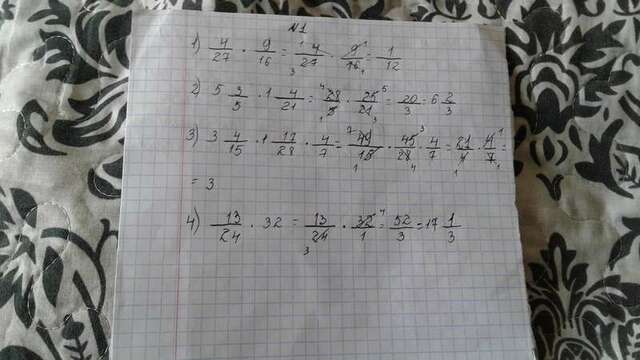 №1
1) 4/27 · 9/16 = 4/27 · 9/16 = 1/12
2) 5 3/5 · 1 4/21 = 28/5 · 25/21 = 20/3 = 6 2/3
3) 3 4/15 · 1 17/28 · 4/7 = 49/15 · 45/28 · 4/7 = 21/4 · 4/7 =
= 3
4) 13/24 · 32 = 13/24 · 32/1 = 52/3 = 17 1/3